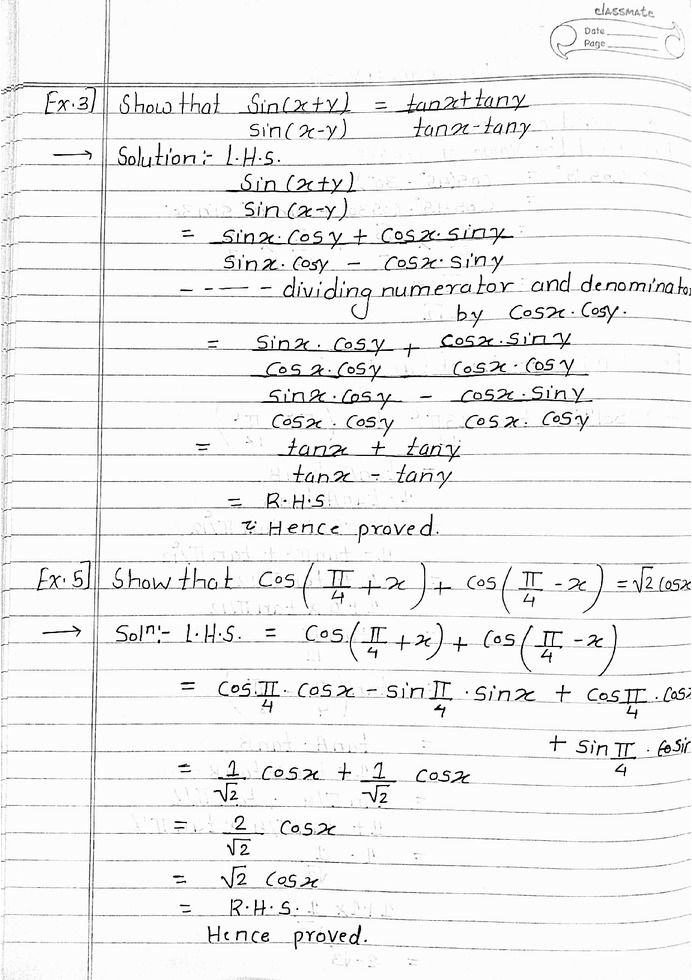 classmate
Date
Page
Ex.3] Show that Sin(x+y) / Sin(x-y) = tanx+tany / tanx-tany
→ Solution:- L.H.S.
Sin (x+y)
Sin (x-y)
= sinx.cosy + cosx.siny
sinx.cosy - cosx.siny
- - - - - dividing numerator and denominator
by cosx.cosy.
= sinx.cosy + cosx.siny
cosx.cosy cosx.cosy
sinx.cosy - cosx.siny
cosx.cosy cosx.cosy
= tanx + tany
tanx - tany
= R.H.S
∵ Hence proved.
Ex.5] Show that cos(π/4 + x) + cos(π/4 - x) = √2 cosx
→ Solⁿ:- L.H.S. = cos(π/4 + x) + cos(π/4 - x)
= cos π/4 . cosx - sin π/4 . sinx + cos π/4 . cosx
+ sin π/4 .
= 1/√2 cosx + 1/√2 cosx
= 2/√2 cosx
= √2 cosx
= R.H.S.
Hence proved.